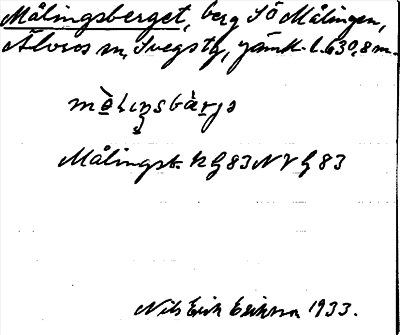 Målingsberget, berg SÖ Målingen,
Älvros sn, Svegs tg, Jämtl. l. 630,8 m.
må̀lıŋsbæ̀rjə
Målingsb. K G 83 NV G 83
Nils Erik Eriksson 1933.